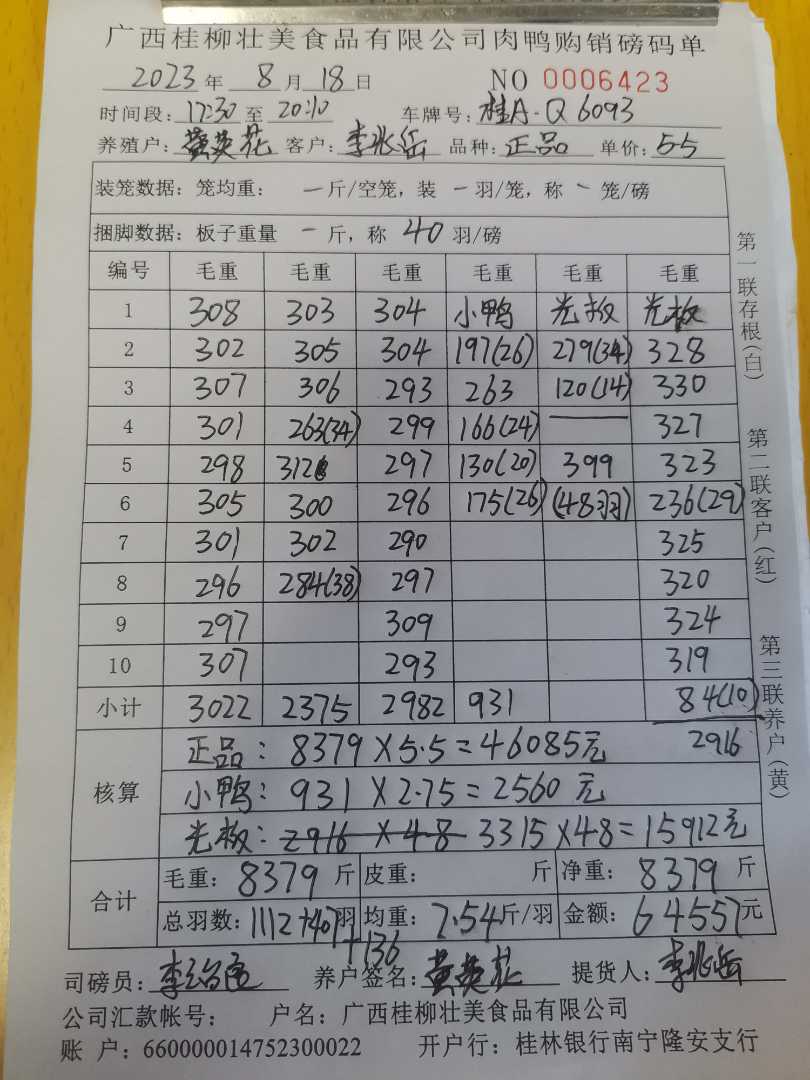 广西桂柳壮美食品有限公司肉鸭购销磅码单
2023年 8月18日 NO 0006423
时间段: 17:30 至 20:10 车牌号: 桂A-Q6093
养殖户: 黄英花 客户: 李兆岳 品种: 正品 单价: 5.5
装笼数据: 笼均重: 一斤/空笼, 装 一 羽/笼, 称 一 笼/磅
捆脚数据: 板子重量 一 斤, 称 40 羽/磅
编号 毛重 毛重 毛重 毛重 毛重 毛重
1 308 303 304 小鸭 光板 光板
2 302 305 304 197(26) 279(34) 328
3 307 306 293 263 120(14) 330
4 301 263(34) 299 166(24) — 327
5 298 312 297 130(20) 399 323
6 305 300 296 175(26) (48羽) 236(29)
7 301 302 290 325
8 296 284(38) 297 320
9 297 309 324
10 307 293 319
小计 3022 2375 2982 931 84(10)
2916
核算
正品: 8379×5.5=46085元
小鸭: 931×2.75=2560元
光板: 2916×4.8 3315×48=15912元
合计
毛重: 8379 斤 皮重: 斤 净重: 8379 斤
总羽数: 1112+407羽 均重: 7.54斤/羽 金额: 64557元
+136
司磅员: 养户签名: 黄英花 提货人: 李兆岳
公司汇款帐号: 户名: 广西桂柳壮美食品有限公司
账 户: 660000014752300022 开户行: 桂林银行南宁隆安支行
第一联存根(白)
第二联客户(红)
第三联养户(黄)